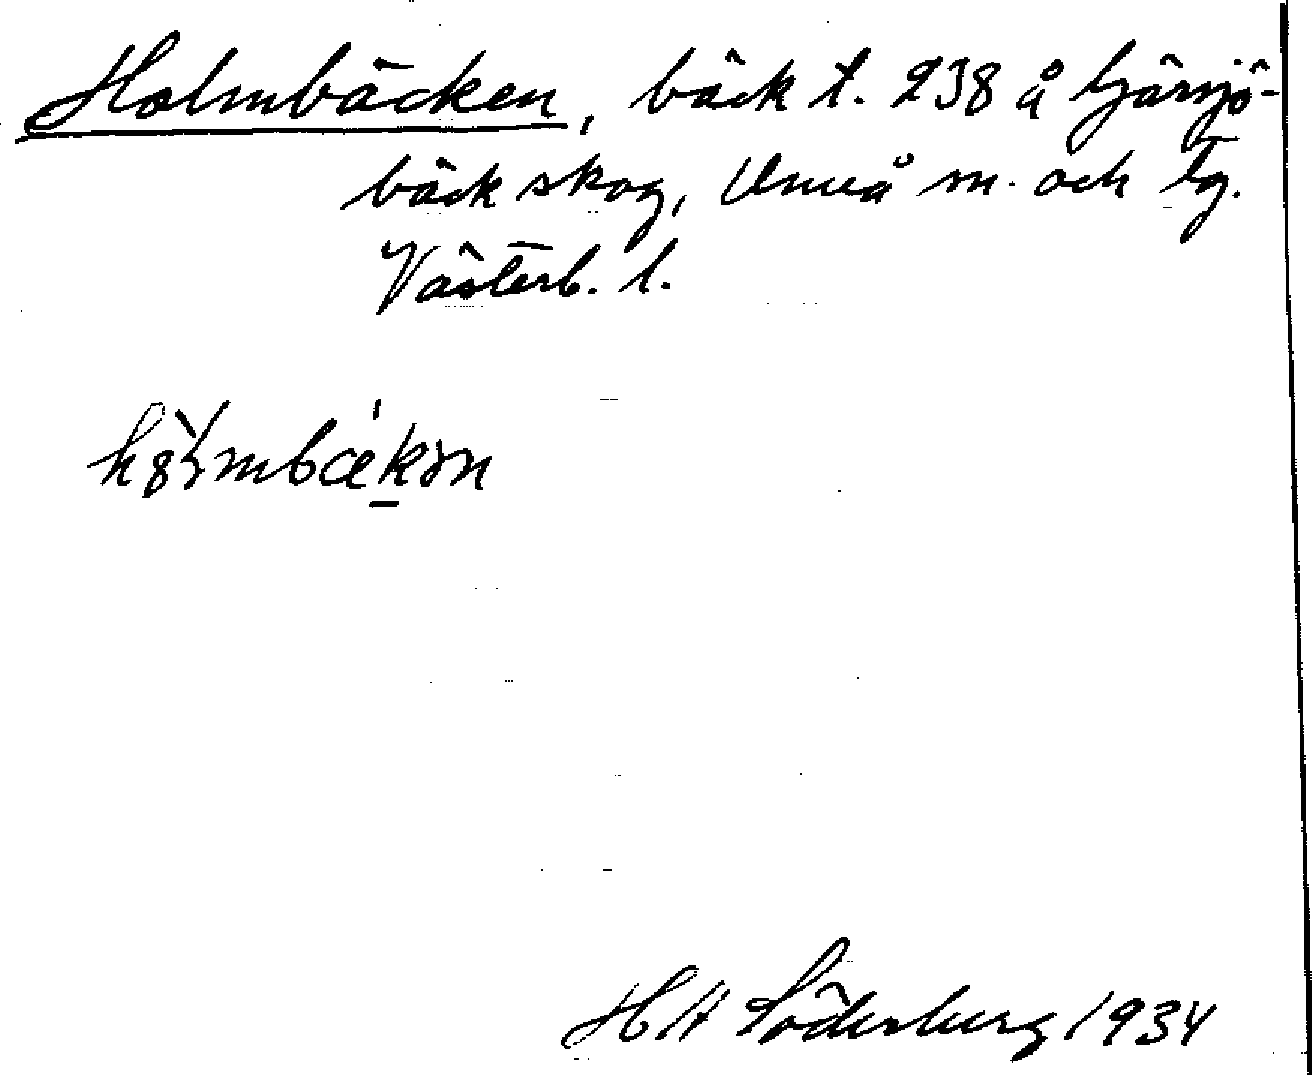 Holmbäcken, bäck t. 238 å Tjärnjö-
bäck skog, Umeå sn. och tg.
Västerb. l.
HH Söderberg 1934